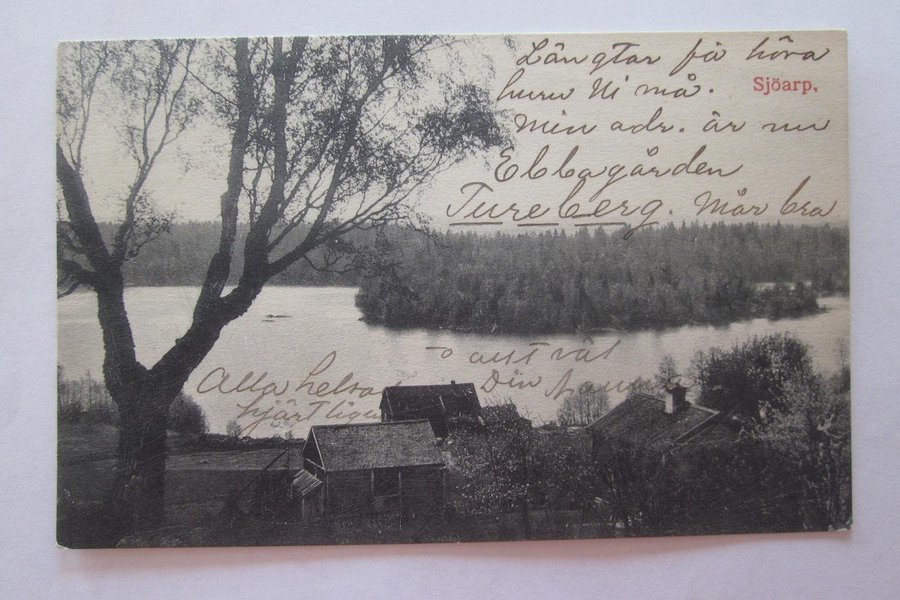 Längtar få höra
huru Ni må.
Sjöarp.
Min adr. är nu
Ebbagården
Tureberg. Mår bra
o allt väl
Alla helsa
Din
hjärtligen